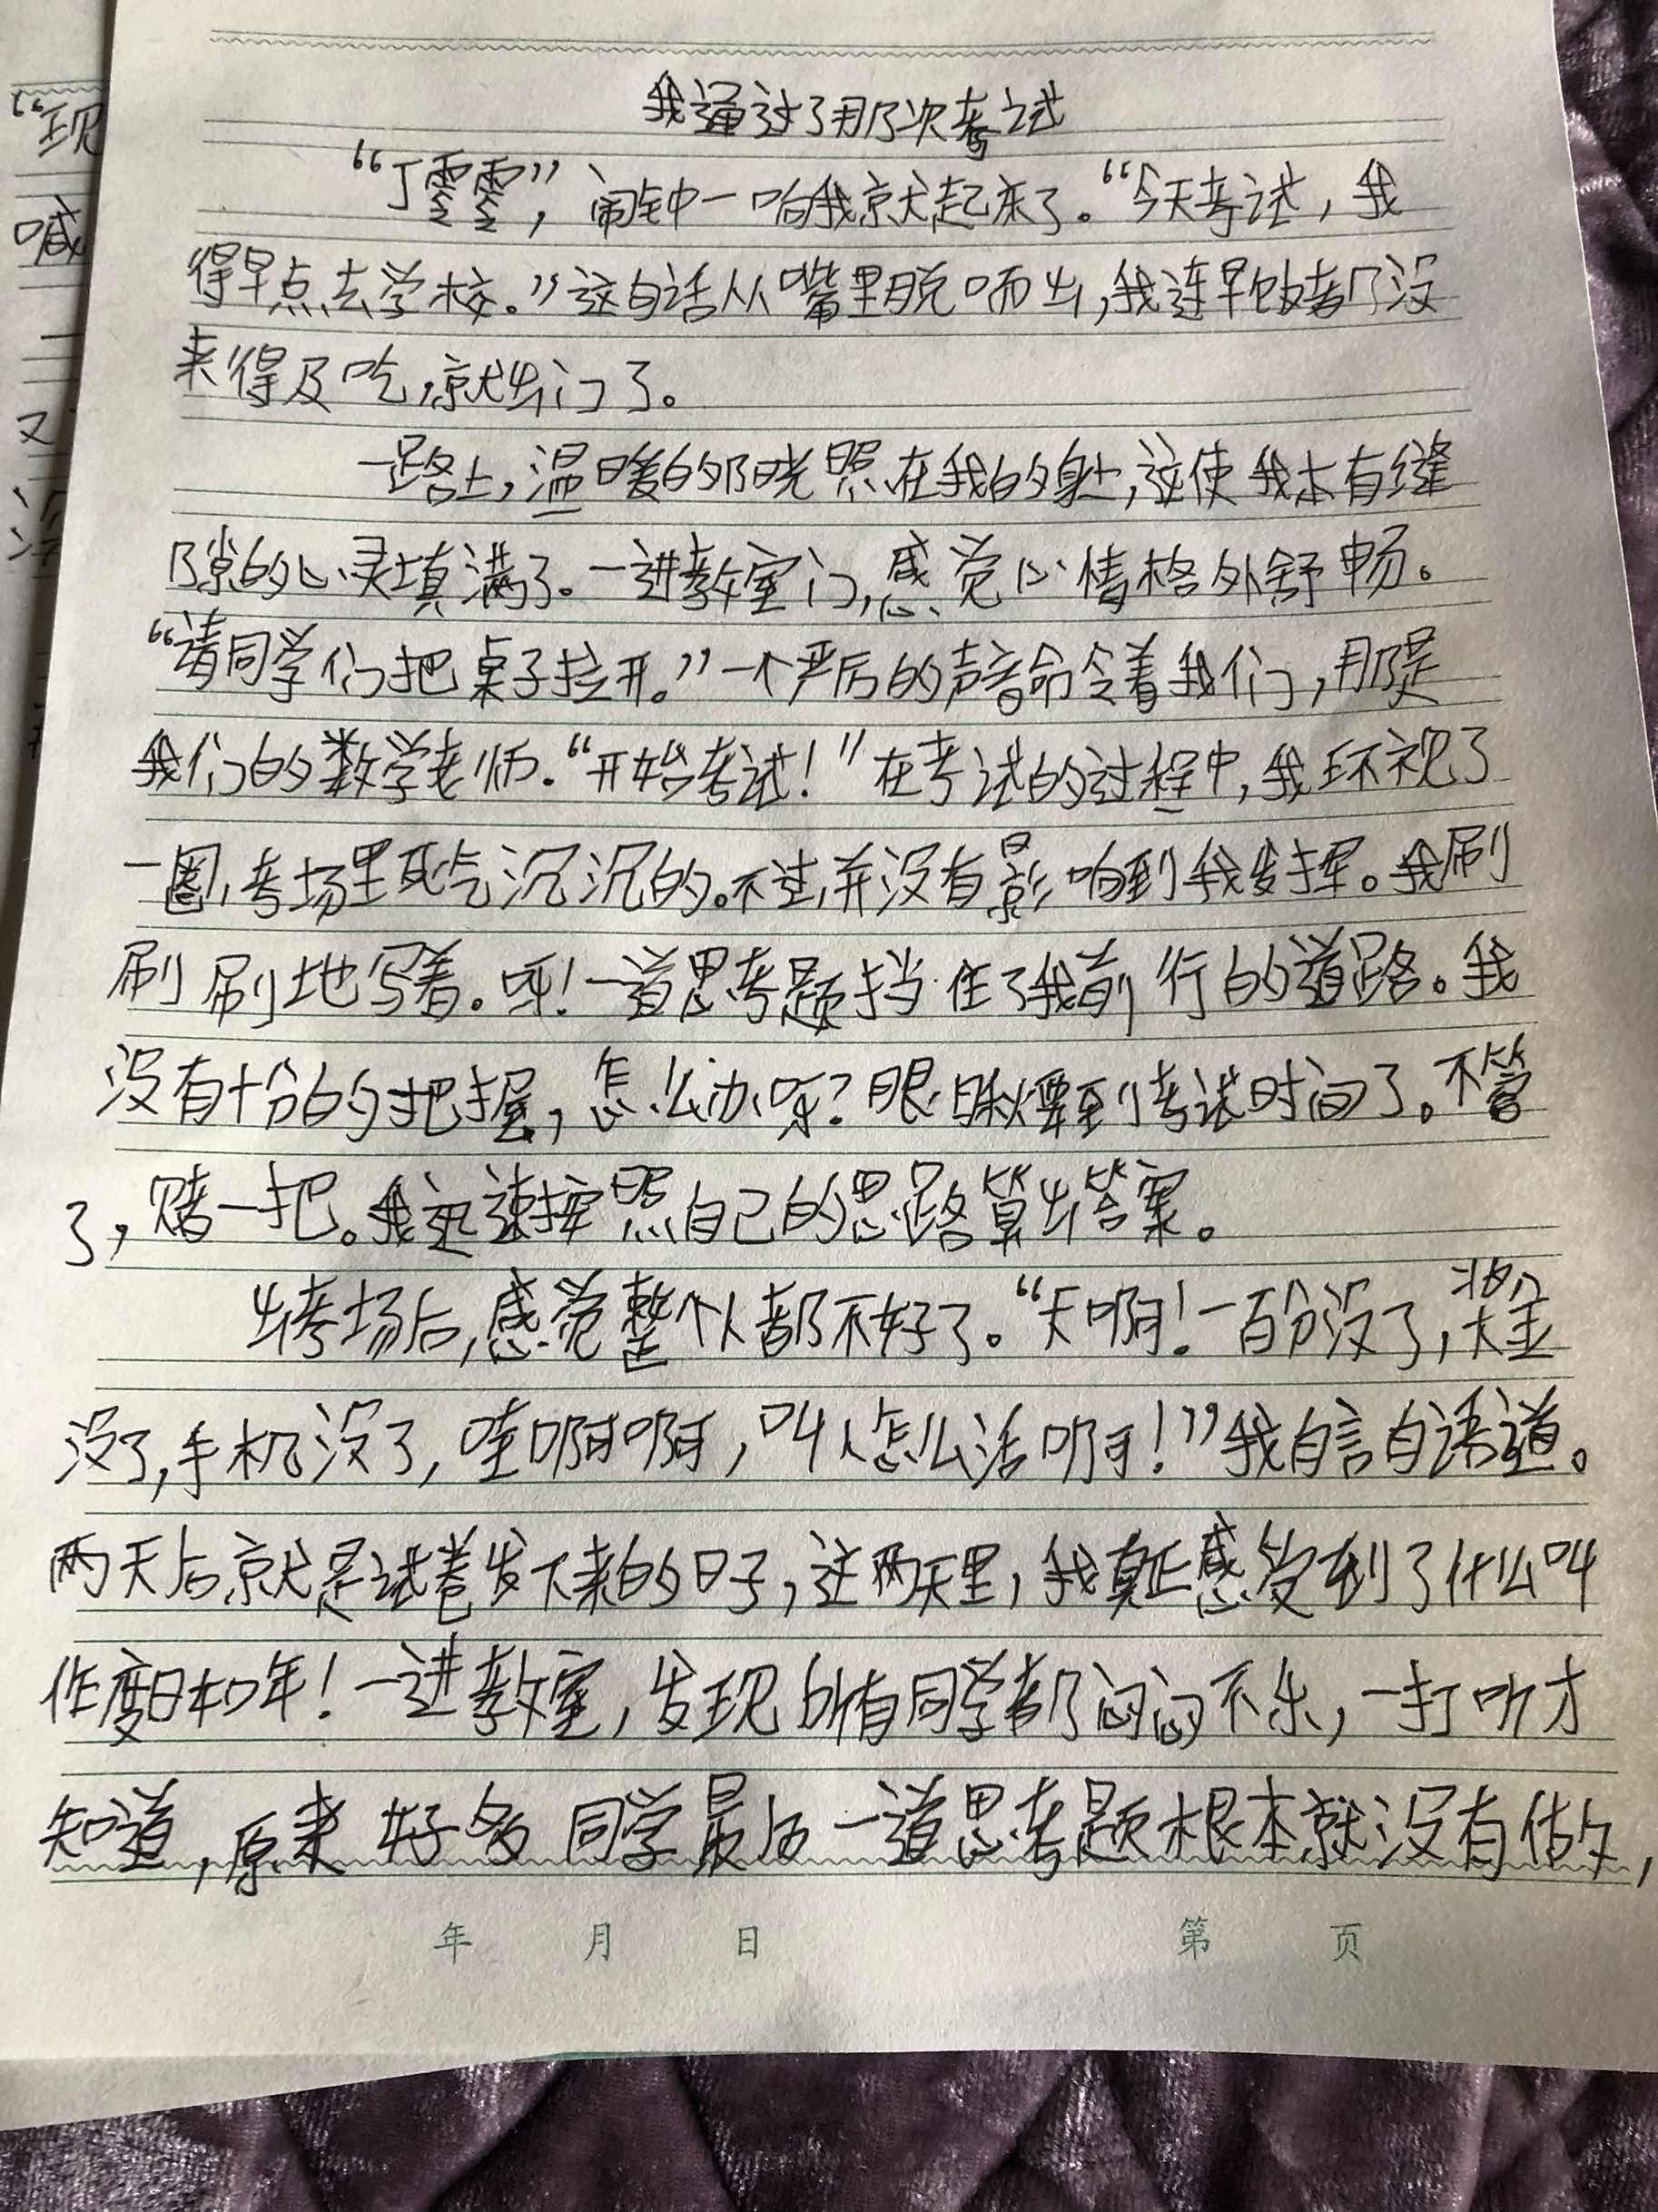 我通过了那次考试
“丁零零”，闹钟一响我就起来了。“今天考试，我
得早点去学校。”这句话从嘴里脱口而出，我连早饭都没
来得及吃，就出门了。
一路上，温暖的阳光照在我的身上，这使我本有缝
隙的心灵填满了。一进教室门，感觉心情格外舒畅。
“请同学们把桌子拉开。”一个严厉的声音命令着我们，那是
我们的数学老师。“开始考试！”在考试的过程中，我环视了
一圈，考场里死气沉沉的。不过，并没有影响到我发挥。我刷
刷刷地写着。呀！一道思考题挡住了我前行的道路。我
没有十分的把握，怎么办呀？眼瞅要到考试时间了。不管
了，赌一把。我迅速按照自己的思路算出答案。
出考场后，感觉整个人都不好了。“天啊！一百分没了，奖金
没了，手机没了，哇啊啊，叫人怎么活啊！”我自言自语道。
两天后就是试卷发下来的日子，这两天里，我真正感受到了什么叫
作度日如年！一进教室，发现所有同学都闷闷不乐，一打听才
知道，原来好多同学最后一道思考题根本就没有做，
年 月 日 第 页
“现
喊
又